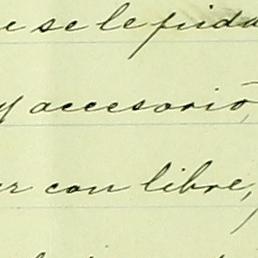 e se le pida
y accesorio,
er con libre,